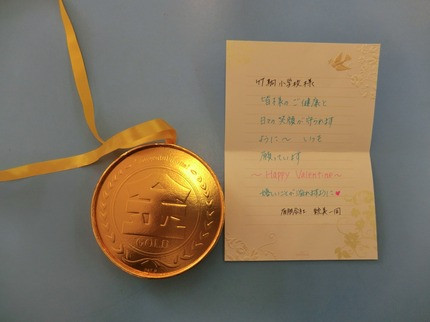 小学校様
皆様のご健康と
日々の笑顔が守られます
ように〜 いつも
願っています
〜Happy Valentine〜
嬉しいことが溢れますように♥
一同
GOLD